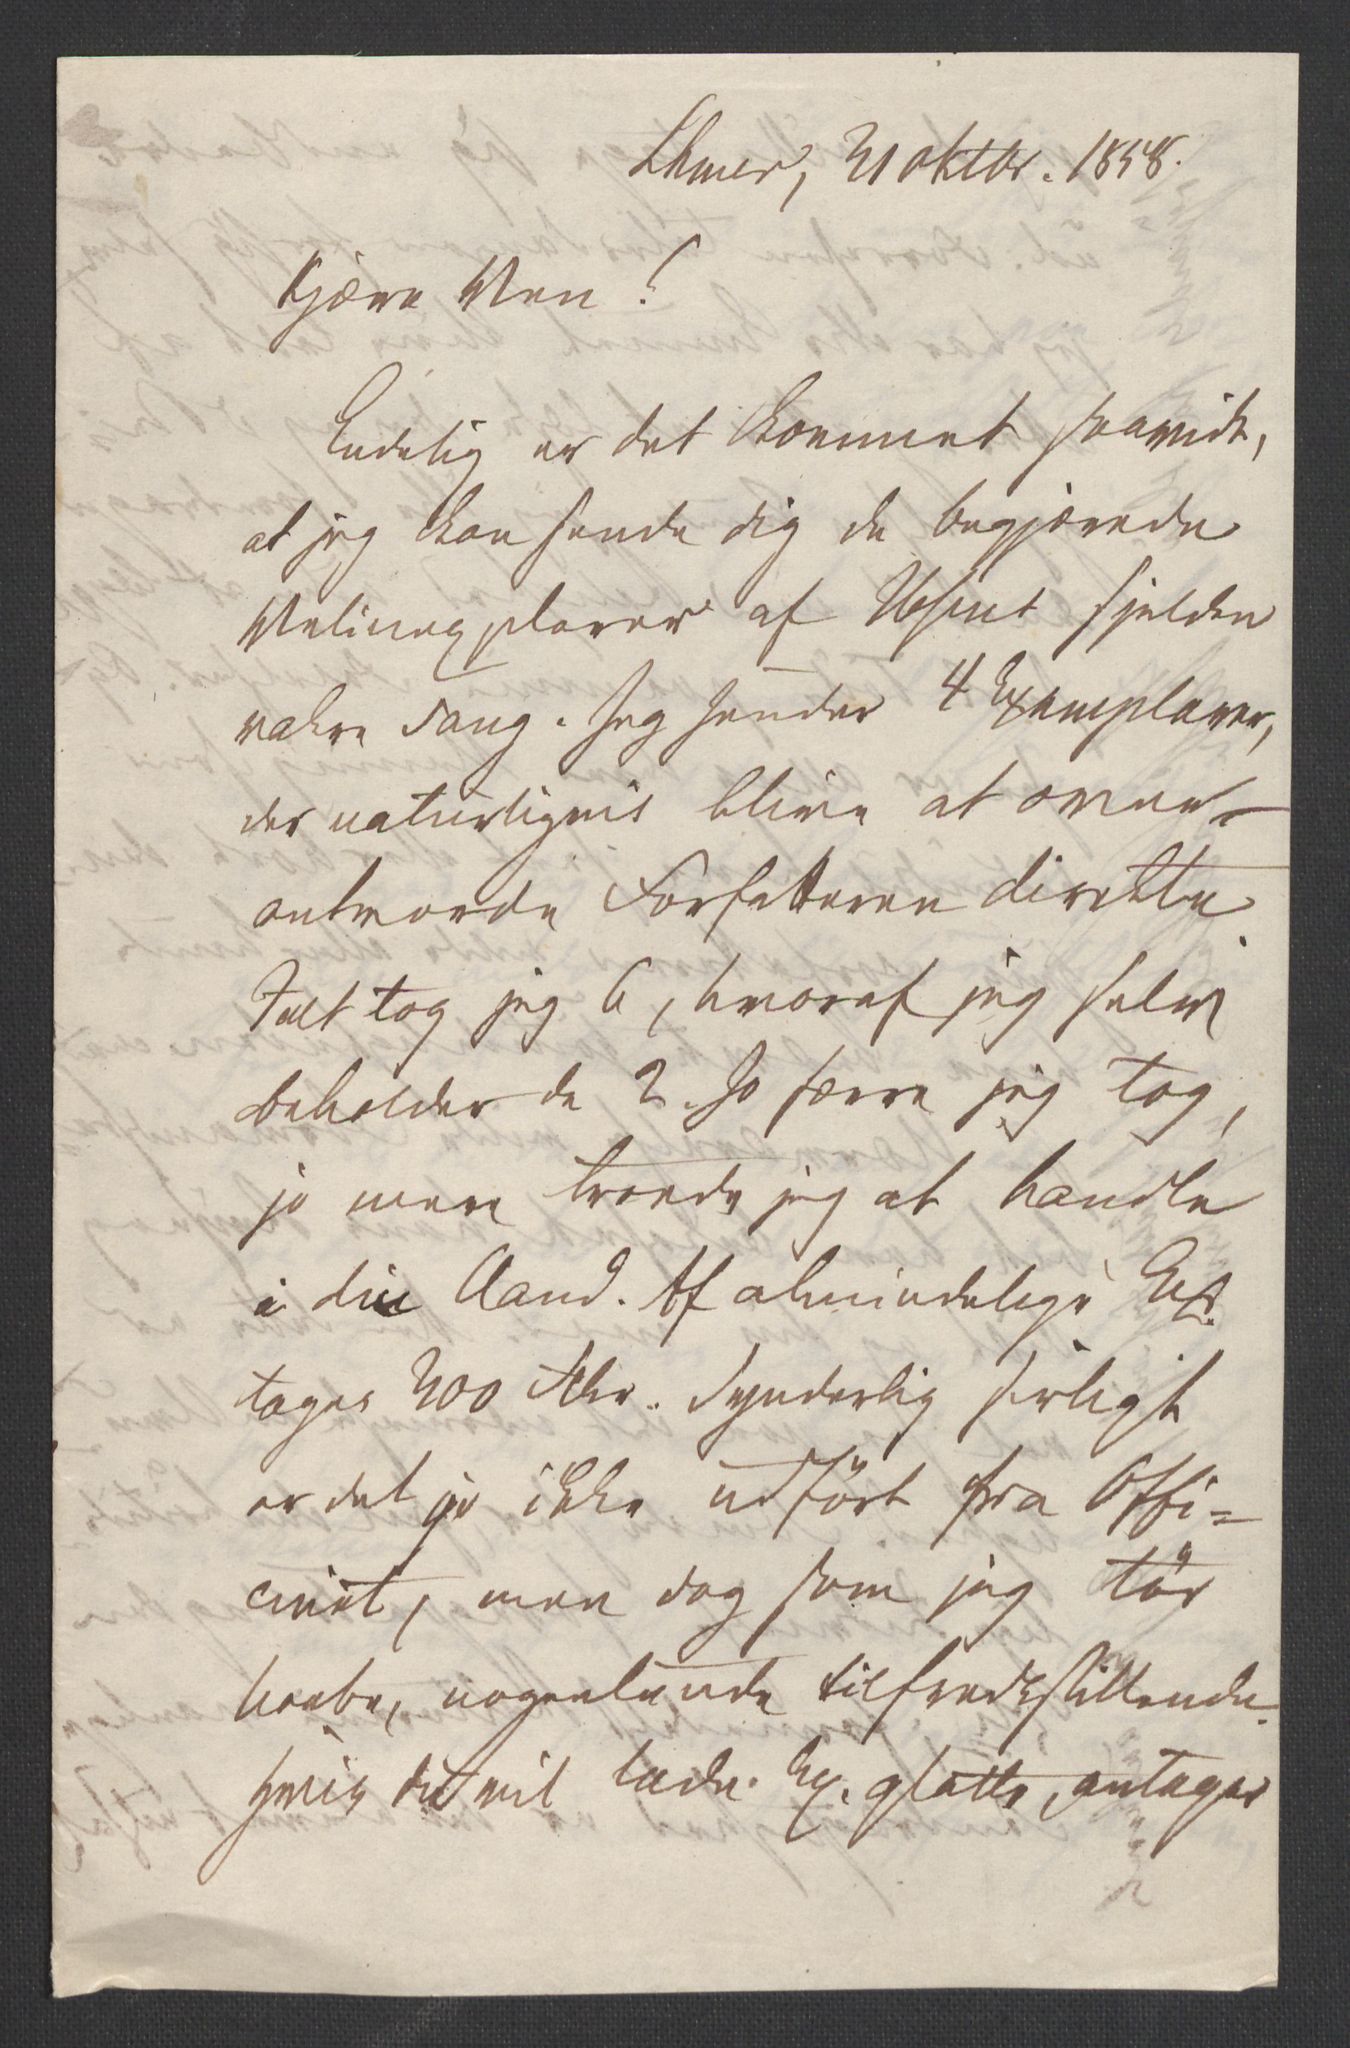 Lhmer, 21 oktbr. 1858.
Kjære Ven!
Endelig er det kommet saavidt,
at jeg kan sende dig de begjærede
Velinexplarer af sjelden
vakre Sang. Jeg sender 4 Exemplarer,
der naturligvis blive at over-
antvorde Forfatteren direkte.
Ialt tog jeg 6, hvoraf jeg selv
beholder de 2. Jo færre jeg tog,
jo mere troede jeg at handle
i din Aand. Af almindelige Ex.
toges 300 Stkr. Synderlig sirligt
er det jo ikke udfört fra Offi-
cinet, men dog som jeg tör
haabe, nogenlunde tilfredsstillende.
Hvis du vil lade Ex. glatte, antager